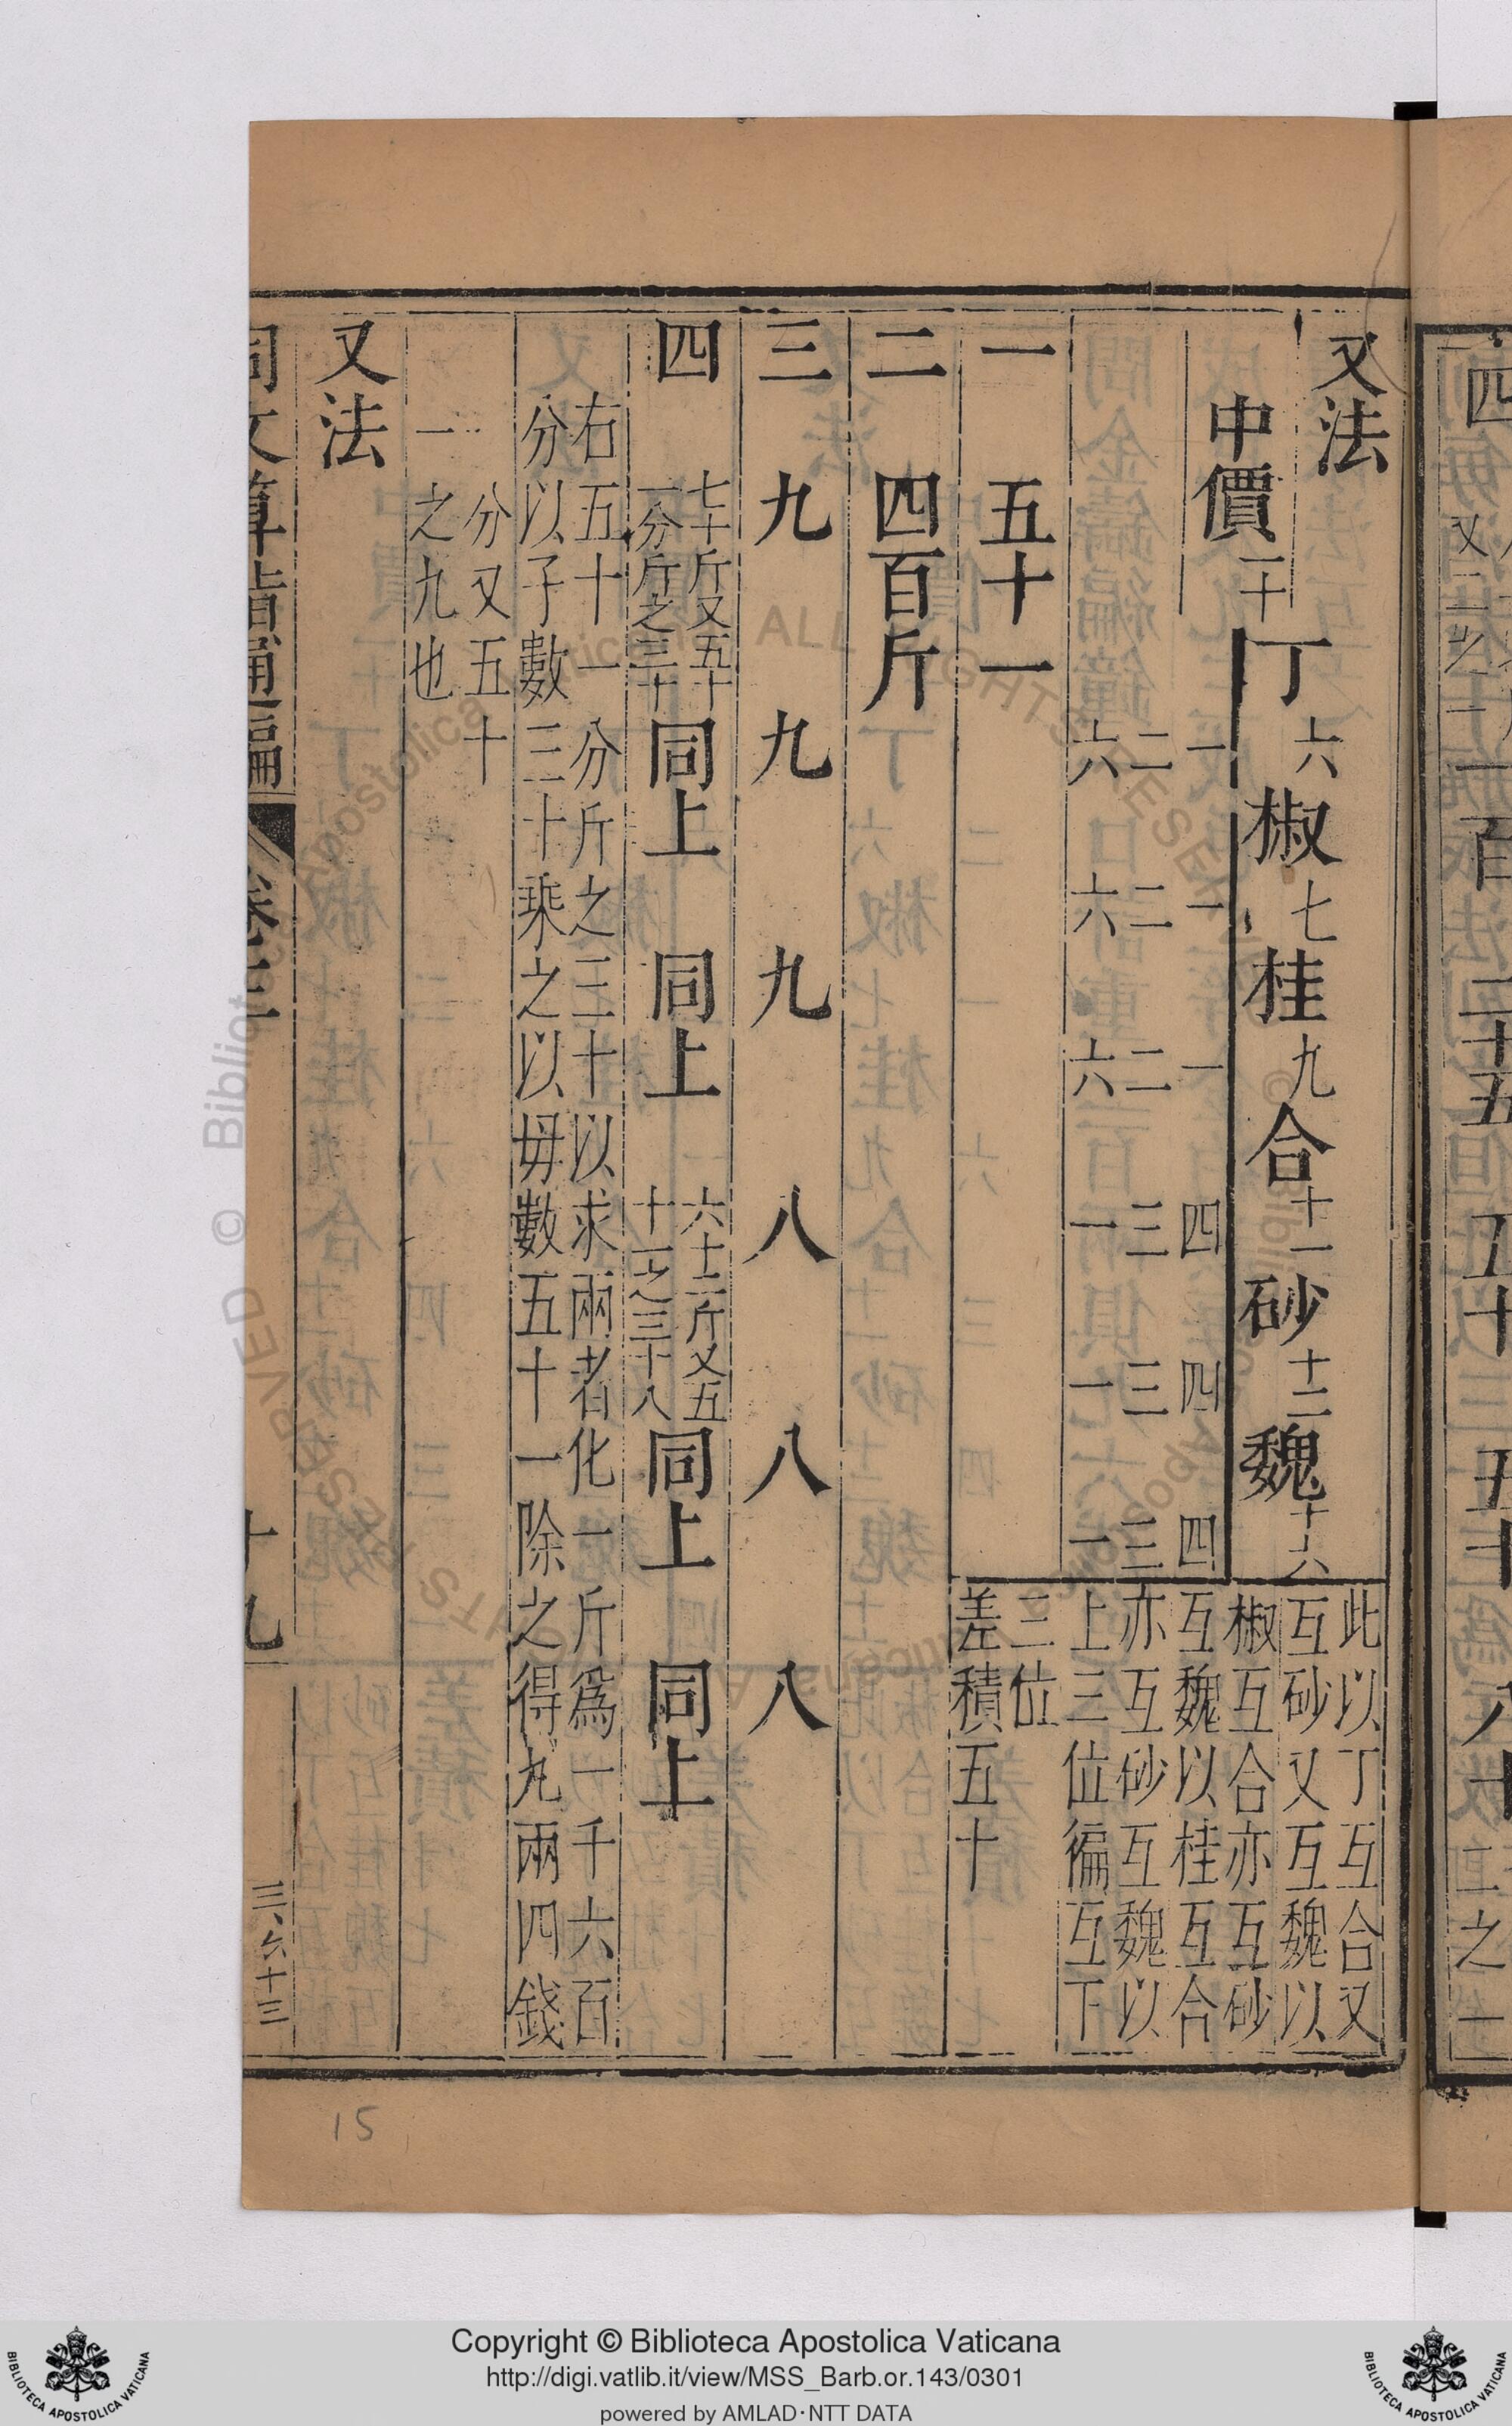 又法
中價 二十 丁 六 椒 七 桂 九 合 十一 砂 十二 魏 十六
一 一 一 四 四 四
二 二 二 三 三 三
六 六 六 一 一 一
此以丁互合又
互砂又互魏以
椒互合亦互砂
互魏以桂互合
亦互砂互魏以
上三位徧互下
三位
差積五十
一 五十一
二 四百斤
三 九 九 九 八 八 八
四 七十斤又五十一分斤之三十 同上 同上 六十二斤又五十一之三十八 同上 同上
右五十一分斤之三十以求兩者化一斤爲一千六百
分以子數三十乘之以毋數五十一除之得九兩四錢
分又五十
一之九也
又法
同文算指通編 卷三 十九 三六十三
15
四
Copyright © Biblioteca Apostolica Vaticana
http://digi.vatlib.it/view/MSS_Barb.or.143/0301
powered by AMLAD·NTT DATA
BIBLIOTECA APOSTOLICA VATICANA
BIBLIOTECA APOSTOLICA VATICANA